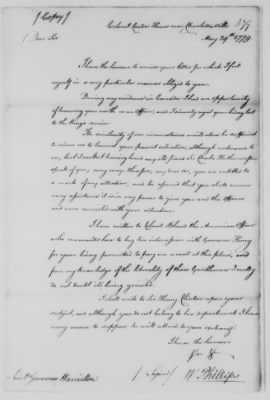 (Copy)
379
Colonel Carters House near Charlottesville
May 29th 1779
Dear Sir
I have the honour to receive your letter for which I feel
myself in a very particular manner obliged to you.
During my residence in Canada I had an opportunity
of knowing your worth as an officer, and I sincerely regret your being lost
to the King's service.
The similarity of our circumstances would alone be sufficient
to induce me to lament your present situation, although unknown to
me, but I recollect having heard my old friend Sir Carle
speak of you, very many therefore, my dear Sir, you are entitled to
a mark of my attention, and be assured that you shall never
any assistance it is in my power to give you and the officers
and men connected with your misfortune.
I have written to Colonel Bland the American officer
who commands here to beg his intercession with Governor Henry
for your being permitted to pay me a visit at this place, and
from my knowledge of the liberality of these Gentlemen I really
do not doubt its being granted.
I shall write to Sir Henry Clinton upon your
subject, and although you do not belong to his department I have
every reason to suppose he will attend to your exchange.
I have the honour
&c &c
(signed) W Phillips
Lieut Governor Hamilton